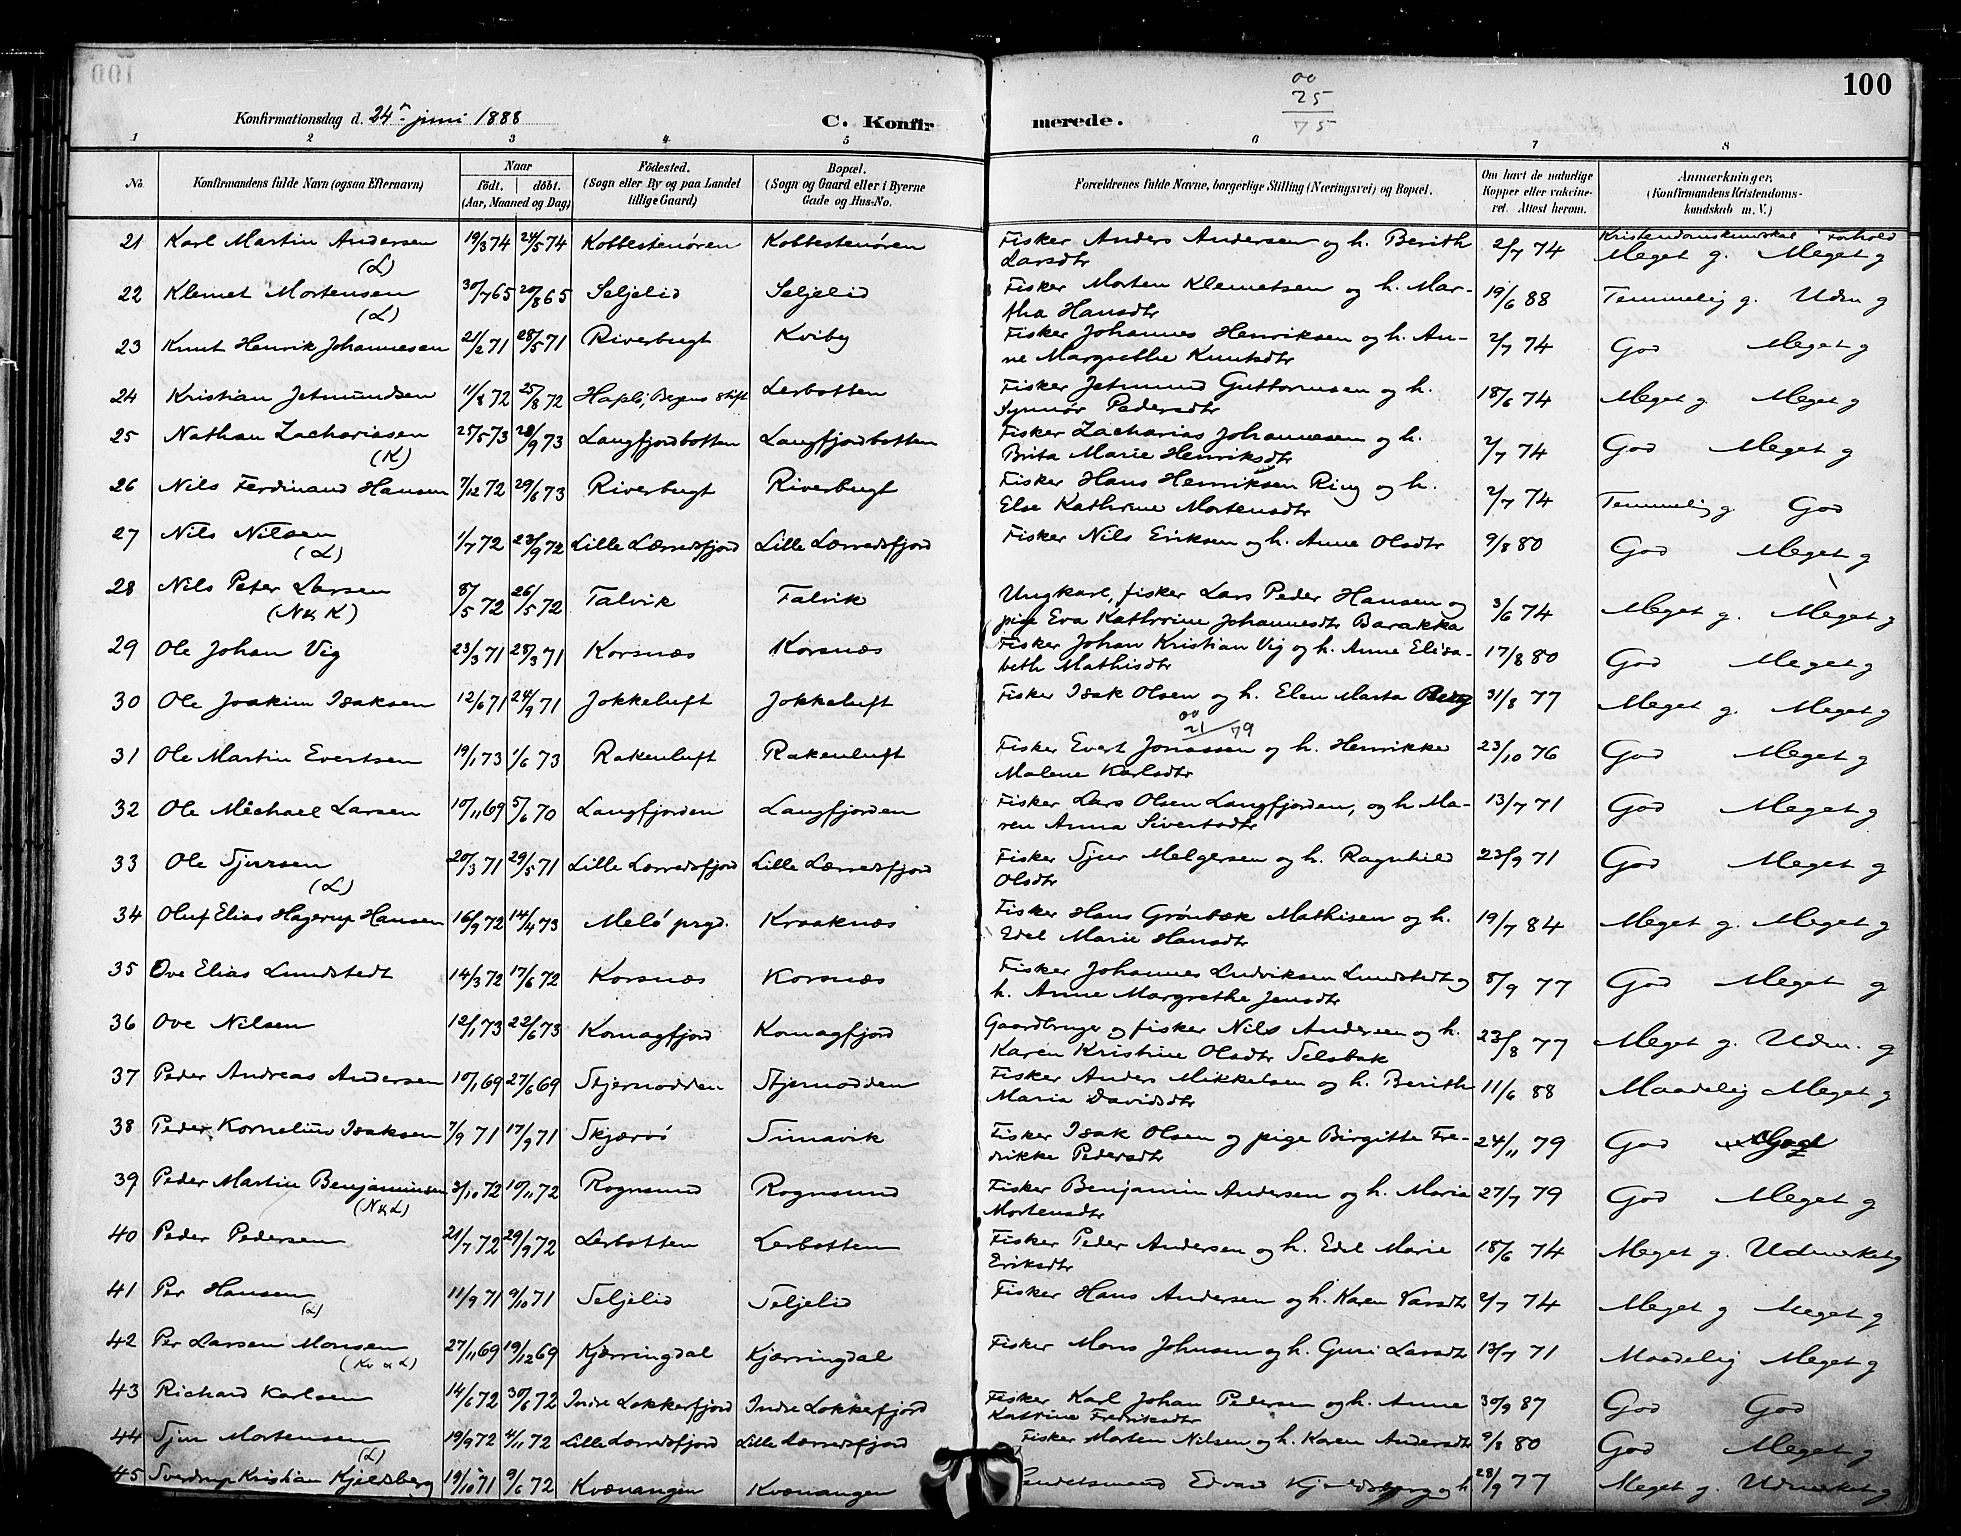 100
Konfirmationsdag d. 24de juni 1888
C. Konfirmerede.
00
25
75
1 2 3 4 5 6 7 8
No. Konfirmandens fulde Navn (ogsaa Efternavn) Naar födt. döbt. (Aar, Maaned og Dag) Födested. (Sogn eller By og paa Landet tillige Gaard) Bopæl. (Sogn og Gaard eller i Byerne Gade og Hus-No. Forældrenes fulde Navne, borgerlige Stilling (Næringsvei) og Bopæl. Om havt de naturlige Kopper eller vaccineret. Attest herom. Anmærkninger, (Konfirmandens Kristendomskundskab m. V.)
Kristendomskundskab Forhold
21 Karl Martin Andersen (L) 19/3 74 24/5 74 Kobbestenören Kobbestenören Fisker Anders Andersen og h. Berith Larsdtr 2/7 74 Meget g. Meget g
22 Klemet Mortensen (L) 30/7 65 20/8 65 Seljelid Seljelid Fisker Morten Klemetsen og h. Martha Hansdtr 19/6 88 Temmelig g. Udm g
23 Knut Henrik Johannesen 21/2 71 28/5 71 Riverbugt Kviby Fisker Johannes Henriksen og h. Anne Margrethe Knutsdtr 2/7 74 God Meget g
24 Kristian Jetmundsen 11/8 72 25/8 72 Hapli, Bergens stift Lerbotten Fisker Jetmund Guttormsen og h. Synnör Pedersdtr 18/6 74 Meget g Meget g
25 Nathan Zachariasen (K) 25/5 73 28/9 73 Langfjordbotten Langfjordbotten Fisker Zacharias Johannesen og h. Brita Marie Henriksdtr 2/7 74 God Meget g
26 Nils Ferdinand Hansen 7/12 72 29/6 73 Riverbugt Riverbugt Fisker Hans Henriksen Ring og h. Else Kathrine Mortensdtr 2/7 74 Temmelig g. God
27 Nils Nilsen (L) 1/7 72 23/9 72 Lille Lærredsfjord Lille Lærredsfjord Fisker Nils Eriksen og h. Anne Olsdtr 9/8 80 God Meget g
28 Nils Peter Larsen (N & K) 8/5 72 26/5 72 Talvik Talvik Ungkarl, fisker Lars Peder Hansen og pige Eva Kathrine Johannesdtr Barakka 3/6 74 Meget g. Meget g
29 Ole Johan Vig 23/3 71 28/3 71 Korsnæs Korsnæs Fisker Johan Kristian Vig og h. Anne Elisabeth Mathisdtr 17/8 80 God Meget g
30 Ole Joakim Isaksen 12/6 71 24/9 71 Jokkeluft Jokkeluft Fisker Isak Olsen og h. Elen Marta Berg 31/8 77 Meget g. Meget g
00
21/79
31 Ole Martin Evertsen 19/1 73 1/6 73 Rakenluft Rakenluft Fisker Evert Jonassen og h. Henrikke Malene Karlsdtr 23/10 76 God Meget g
32 Ole Michael Larsen 10/11 69 5/6 70 Langfjorden Langfjorden Fisker Lars Olsen Langfjorden, og h Maren Anna Sivertsdtr 13/7 71 God Meget g
33 Ole Sjursen (L) 20/3 71 29/5 71 Lille Lærredsfjord Lille Lærredsfjord Fisker Sjur Melgersen og h. Ragnhild Olsdtr 23/9 71 God Meget g
34 Oluf Elias Hagerup Hansen 16/9 72 14/4 73 Melö prgd. Kraaknæs Fisker Hans Grönbæk Mathisen og h. Edel Marie Hansdtr 19/7 84 Meget g. Meget g
35 Ove Elias Lundstedt 14/3 72 17/6 72 Korsnæs Korsnæs Fisker Johannes Ludviksen Lundstedt og h. Anne Margrethe Jensdtr 8/9 77 God Meget g
36 Ove Nilsen 12/1 73 22/6 73 Komagfjord Komagfjord Gaardbruger og fisker Nils Andersen og h. Karen Kristine Olsdtr Selsbak 23/8 77 Meget g. Udm. g
37 Peder Andreas Andersen 10/1 69 27/6 69 Stjernodden Stjernodden Fisker Anders Mikkelsen og h. Berith Maria Davidsdtr 11/6 88 Maadelig Meget g
38 Peder Kornelius Isaksen 7/9 71 17/9 71 Skjærvö Simavik Fisker Isak Olsen og pige Birgitte Fredrikke Pedersdtr 24/11 79 God God
39 Peder Martin Benjaminsen (N & L) 3/10 72 10/11 72 Rognsund Rognsund Fisker Benjamin Andersen og h. Maria Mortensdtr 27/7 79 God Meget g
40 Peder Pedersen 21/7 72 29/9 72 Lerbotten Lerbotten Fisker Peder Andersen og h. Edel Marie Eriksdtr 18/6 74 Meget g. Udmerket g
41 Per Hansen (L) 11/9 71 9/10 71 Seljelid Seljelid Fisker Hans Andersen og h. Karen Larsdtr 2/7 74 Meget g Meget g
42 Per Larsen Monsen (Kv & L) 27/11 69 19/12 69 Kjærringdal Kjærringdal Fisker Mons Johnsen og h. Guri Larsdtr 13/7 71 Maadelig Meget g
43 Richard Karlsen 14/6 72 30/6 72 Indre Lokkerfjord Indre Lokkefjord Fisker Karl Johan Pedersen og h. Anne Katrine Fredriksdtr 30/9 87 God God
44 Sjur Mortensen (L) 19/9 72 4/11 72 Lille Lærredsfjord Lille Lærredsfjord Fisker Morten Nilsen og h. Karen Andersdtr 9/8 80 God Meget g
45 Sverdrup Kristian Kjeldsberg 19/10 71 9/6 72 Kvænangen Kvænangen Edvard Kjeldsberg og h 28/9 77 Meget g. Udmerket g